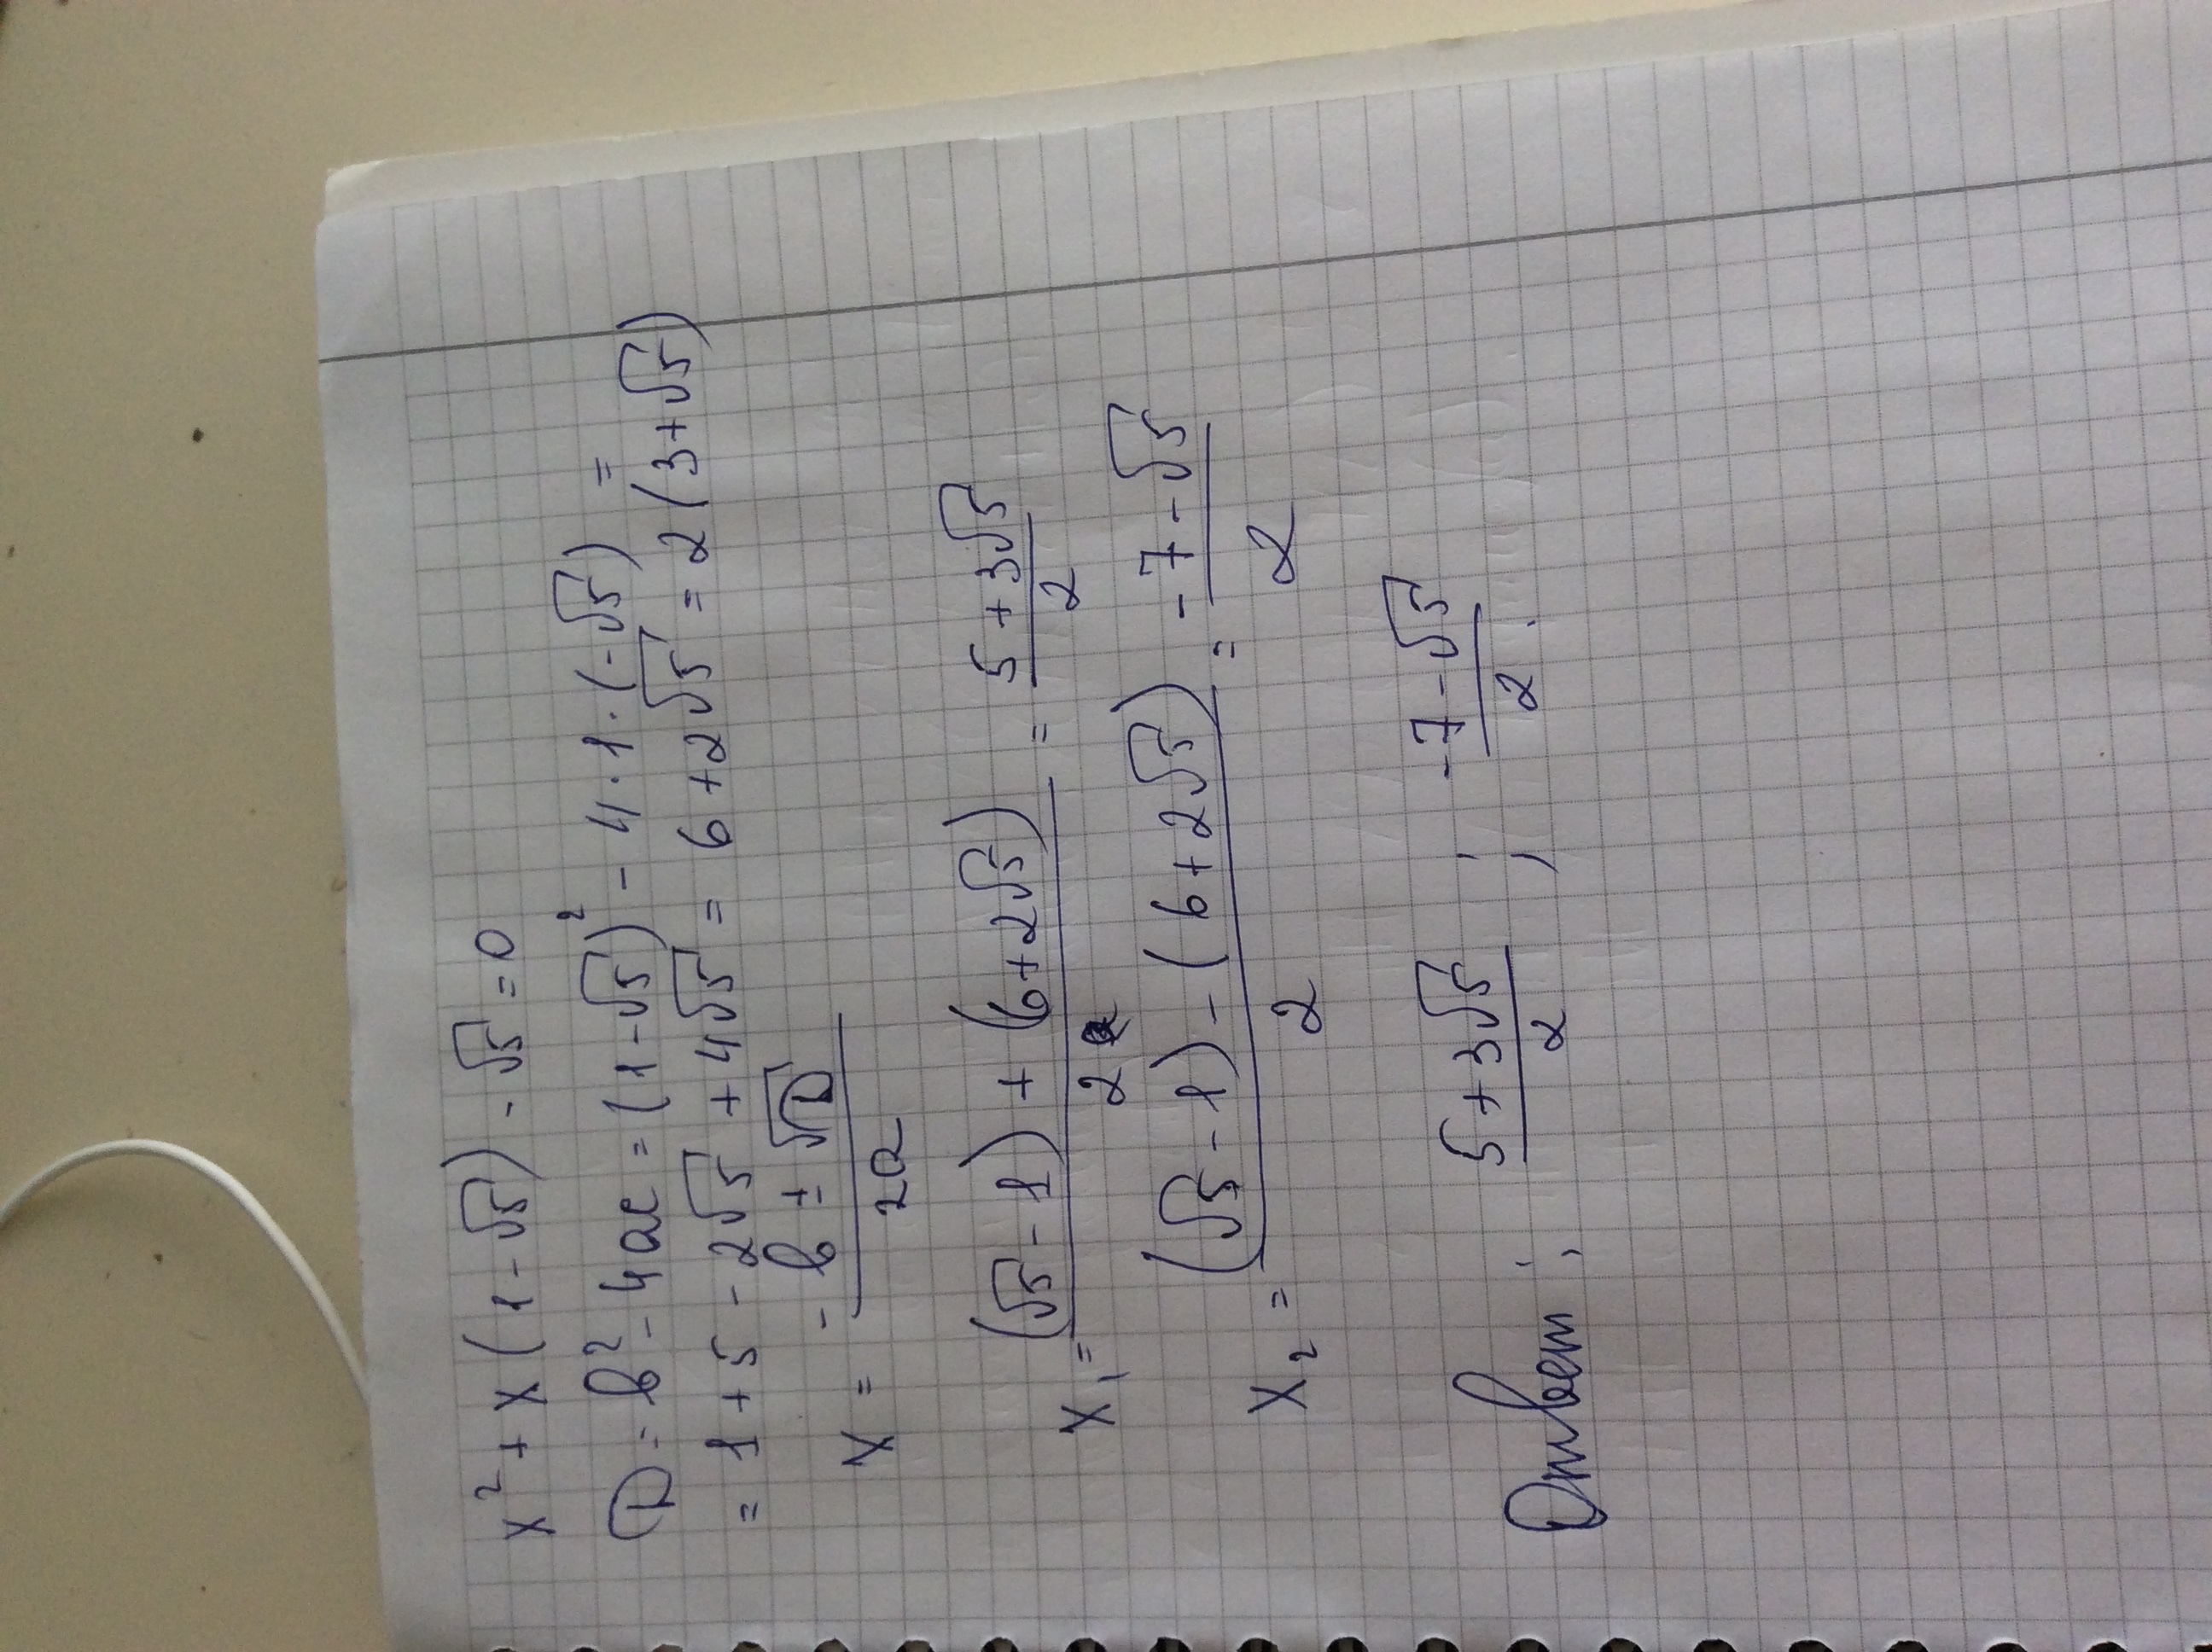 x² + x(1-√5) - √5 = 0
D = b² - 4ac = (1-√5)² - 4·1·(-√5) =
= 1 + 5 - 2√5 + 4√5 = 6 + 2√5 = 2(3+√5)
x = (-b ± √D)/(2a)
x₁ = ((√5-1) + (6+2√5))/2 = (5+3√5)/2
x₂ = ((√5-1) - (6+2√5))/2 = (-7-√5)/2
Ответ: (5+3√5)/2 ; (-7-√5)/2.